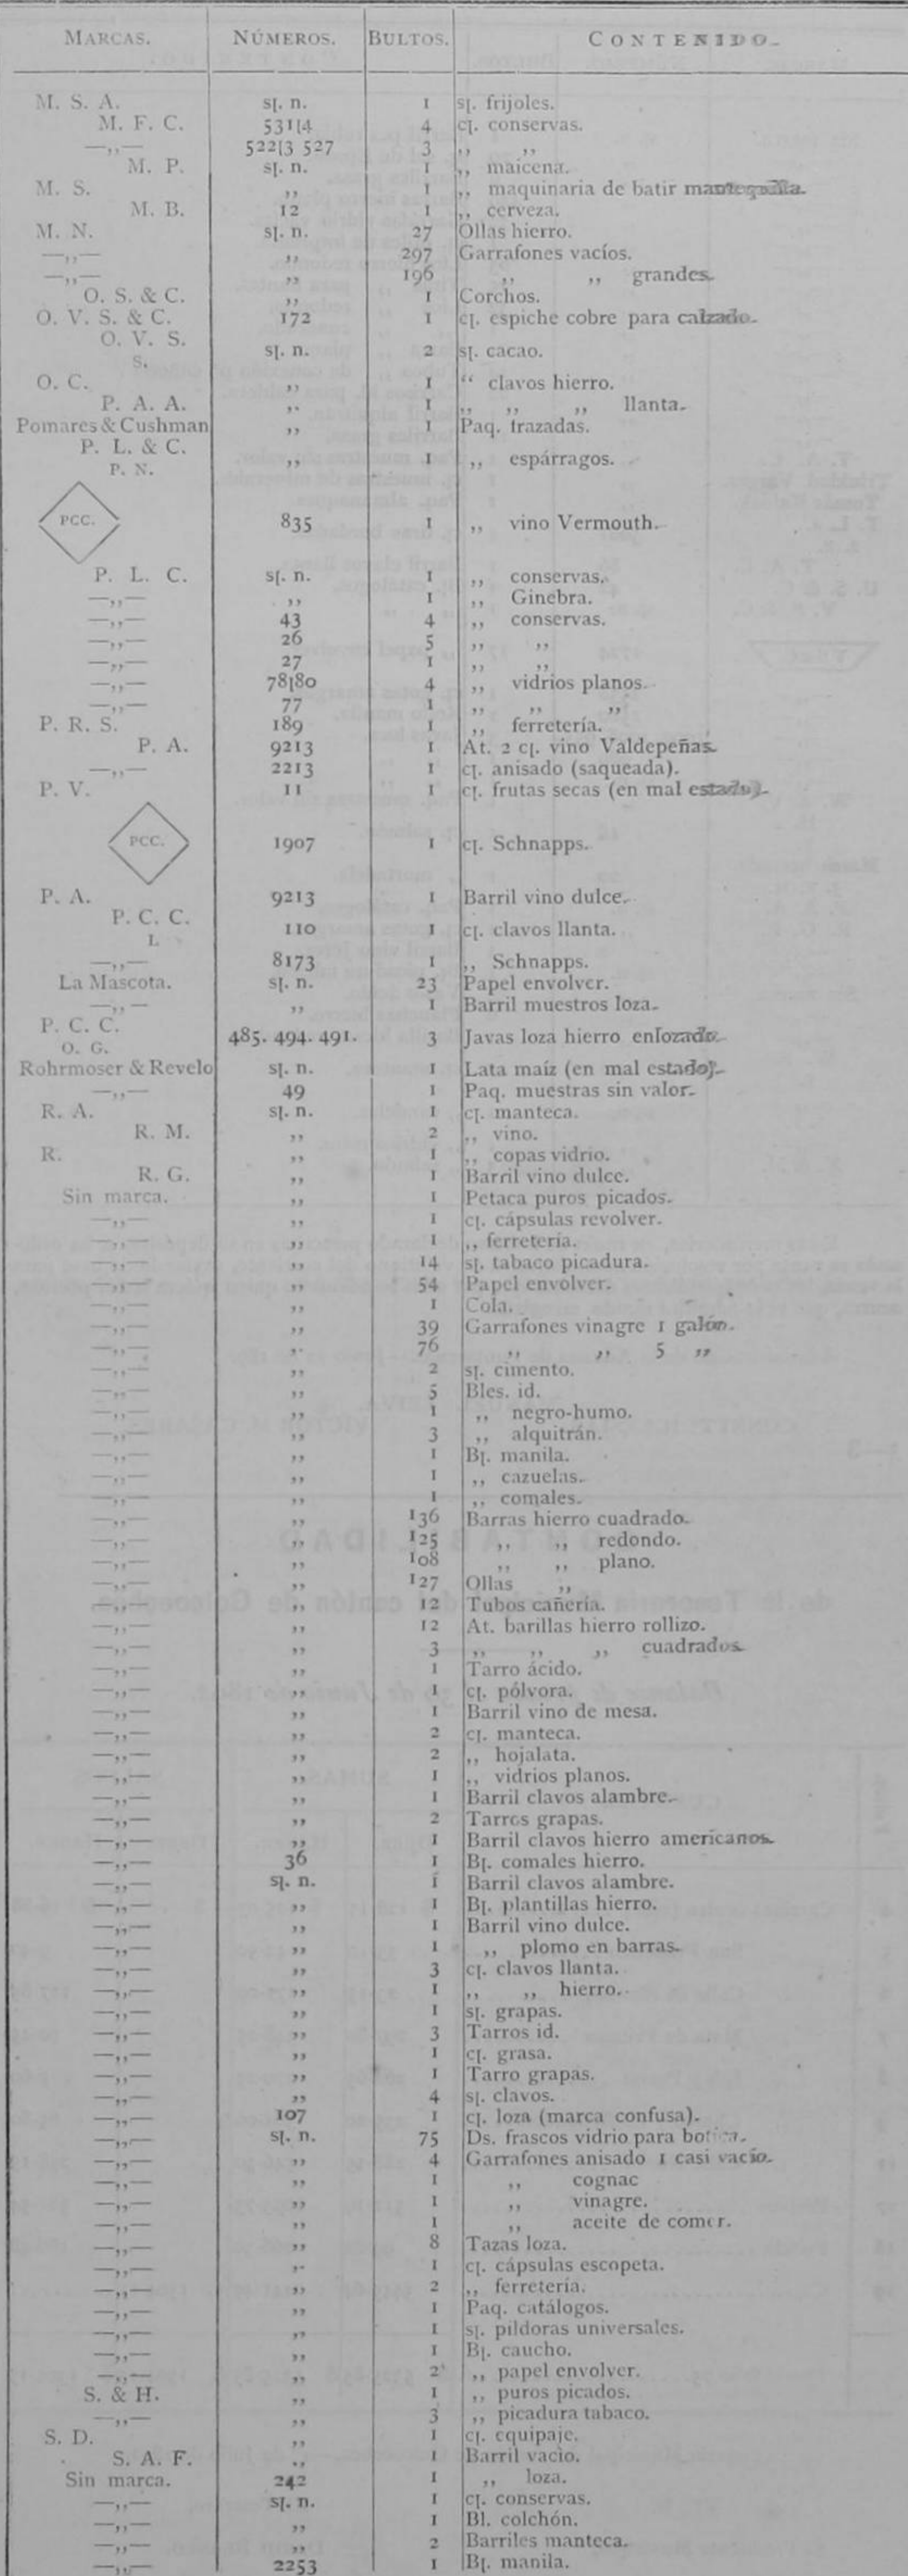 MARCAS. NÚMEROS. BULTOS. CONTENIDO.
M. S. A. s[. n. 1 s[. frijoles.
M. F. C. 531[4 4 c[. conservas.
—,,— 522[3 527 3 ,, ,,
M. P. s[. n. 1 ,, maicena.
M. S. ,, 1 ,, maquinaria de batir mantequilla.
M. B. 12 1 ,, cerveza.
M. N. s[. n. 27 Ollas hierro.
—,,— ,, 297 Garrafones vacíos.
—,,— ,, 196 ,, ,, grandes.
O. S. & C. ,, 1 Corchos.
O. V. S. & C. 172 1 c[. espiche cobre para calzado.
O. V. S.
S. s[. n. 2 s[. cacao.
O. C. ,, 1 “ clavos hierro.
P. A. A. ,, 1 ,, ,, ,, llanta.
Pomares & Cushman ,, 1 Paq. frazadas.
P. L. & C.
P. N. ,, 1 ,, espárragos.
PCC. 835 1 ,, vino Vermouth.
P. L. C. s[. n. 1 ,, conservas.
—,,— ,, 1 ,, Ginebra.
—,,— 43 4 ,, conservas.
—,,— 26 5 ,, ,,
—,,— 27 1 ,, ,,
—,,— 78[80 4 ,, vidrios planos.
—,,— 77 1 ,, ,, ,,
P. R. S. 189 1 ,, ferretería.
P. A. 9213 1 At. 2 c[. vino Valdepeñas.
—,,— 2213 1 c[. anisado (saqueada).
P. V. 11 1 c[. frutas secas (en mal estado).
PCC. 1907 1 c[. Schnapps.
P. A. 9213 1 Barril vino dulce.
P. C. C.
L 110 1 c[. clavos llanta.
—,,— 8173 1 ,, Schnapps.
La Mascota. s[. n. 23 Papel envolver.
—,,— ,, 1 Barril muestros loza.
P. C. C.
O. G. 485. 494. 491. 3 Javas loza hierro enlozado.
Rohrmoser & Revelo s[. n. 1 Lata maíz (en mal estado).
—,,— 49 1 Paq. muestras sin valor.
R. A. s[. n. 1 c[. manteca.
R. M. ,, 2 ,, vino.
R. ,, 1 ,, copas vidrio.
R. G. ,, 1 Barril vino dulce.
Sin marca. ,, 1 Petaca puros picados.
—,,— ,, 1 c[. cápsulas revolver.
—,,— ,, 1 ,, ferretería.
—,,— ,, 14 s[. tabaco picadura.
—,,— ,, 54 Papel envolver.
—,,— ,, 1 Cola.
—,,— ,, 39 Garrafones vinagre 1 galón.
—,,— ,, 76 ,, ,, 5 ,,
—,,— ,, 2 s[. cimento.
—,,— ,, 5 Bles. id.
—,,— ,, 1 ,, negro-humo.
—,,— ,, 3 ,, alquitrán.
—,,— ,, 1 B[. manila.
—,,— ,, 1 ,, cazuelas.
—,,— ,, 1 ,, comales.
—,,— ,, 136 Barras hierro cuadrado.
—,,— ,, 125 ,, ,, redondo.
—,,— ,, 108 ,, ,, plano.
—,,— ,, 127 Ollas ,,
—,,— ,, 12 Tubos cañería.
—,,— ,, 12 At. barillas hierro rollizo.
—,,— ,, 3 ,, ,, ,, cuadrados.
—,,— ,, 1 Tarro ácido.
—,,— ,, 1 c[. pólvora.
—,,— ,, 1 Barril vino de mesa.
—,,— ,, 2 c[. manteca.
—,,— ,, 2 ,, hojalata.
—,,— ,, 1 ,, vidrios planos.
—,,— ,, 1 Barril clavos alambre.
—,,— ,, 2 Tarros grapas.
—,,— ,, 1 Barril clavos hierro americanos.
—,,— 36 1 B[. comales hierro.
—,,— s[. n. 1 Barril clavos alambre.
—,,— ,, 1 B[. plantillas hierro.
—,,— ,, 1 Barril vino dulce.
—,,— ,, 1 ,, plomo en barras.
—,,— ,, 3 c[. clavos llanta.
—,,— ,, 1 ,, ,, hierro.
—,,— ,, 1 s[. grapas.
—,,— ,, 3 Tarros id.
—,,— ,, 1 c[. grasa.
—,,— ,, 1 Tarro grapas.
—,,— ,, 4 s[. clavos.
—,,— 107 1 c[. loza (marca confusa).
—,,— s[. n. 75 Ds. frascos vidrio para botica.
—,,— ,, 4 Garrafones anisado 1 casi vacío.
—,,— ,, 1 ,, cognac
—,,— ,, 1 ,, vinagre.
—,,— ,, 1 ,, aceite de comer.
—,,— ,, 8 Tazas loza.
—,,— ,, 1 c[. cápsulas escopeta.
—,,— ,, 2 ,, ferretería.
—,,— ,, 1 Paq. catálogos.
—,,— ,, 1 s[. píldoras universales.
—,,— ,, 1 B[. caucho.
—,,— ,, 2 ,, papel envolver.
S. & H. ,, 1 ,, puros picados.
—,,— ,, 3 ,, picadura tabaco.
S. D. ,, 1 c[. equipaje.
S. A. F. ,, 1 Barril vacio.
Sin marca. 242 1 ,, loza.
—,,— s[. n. 1 c[. conservas.
—,,— ,, 1 Bl. colchón.
—,,— ,, 2 Barriles manteca.
—,,— 2253 1 B[. manila.